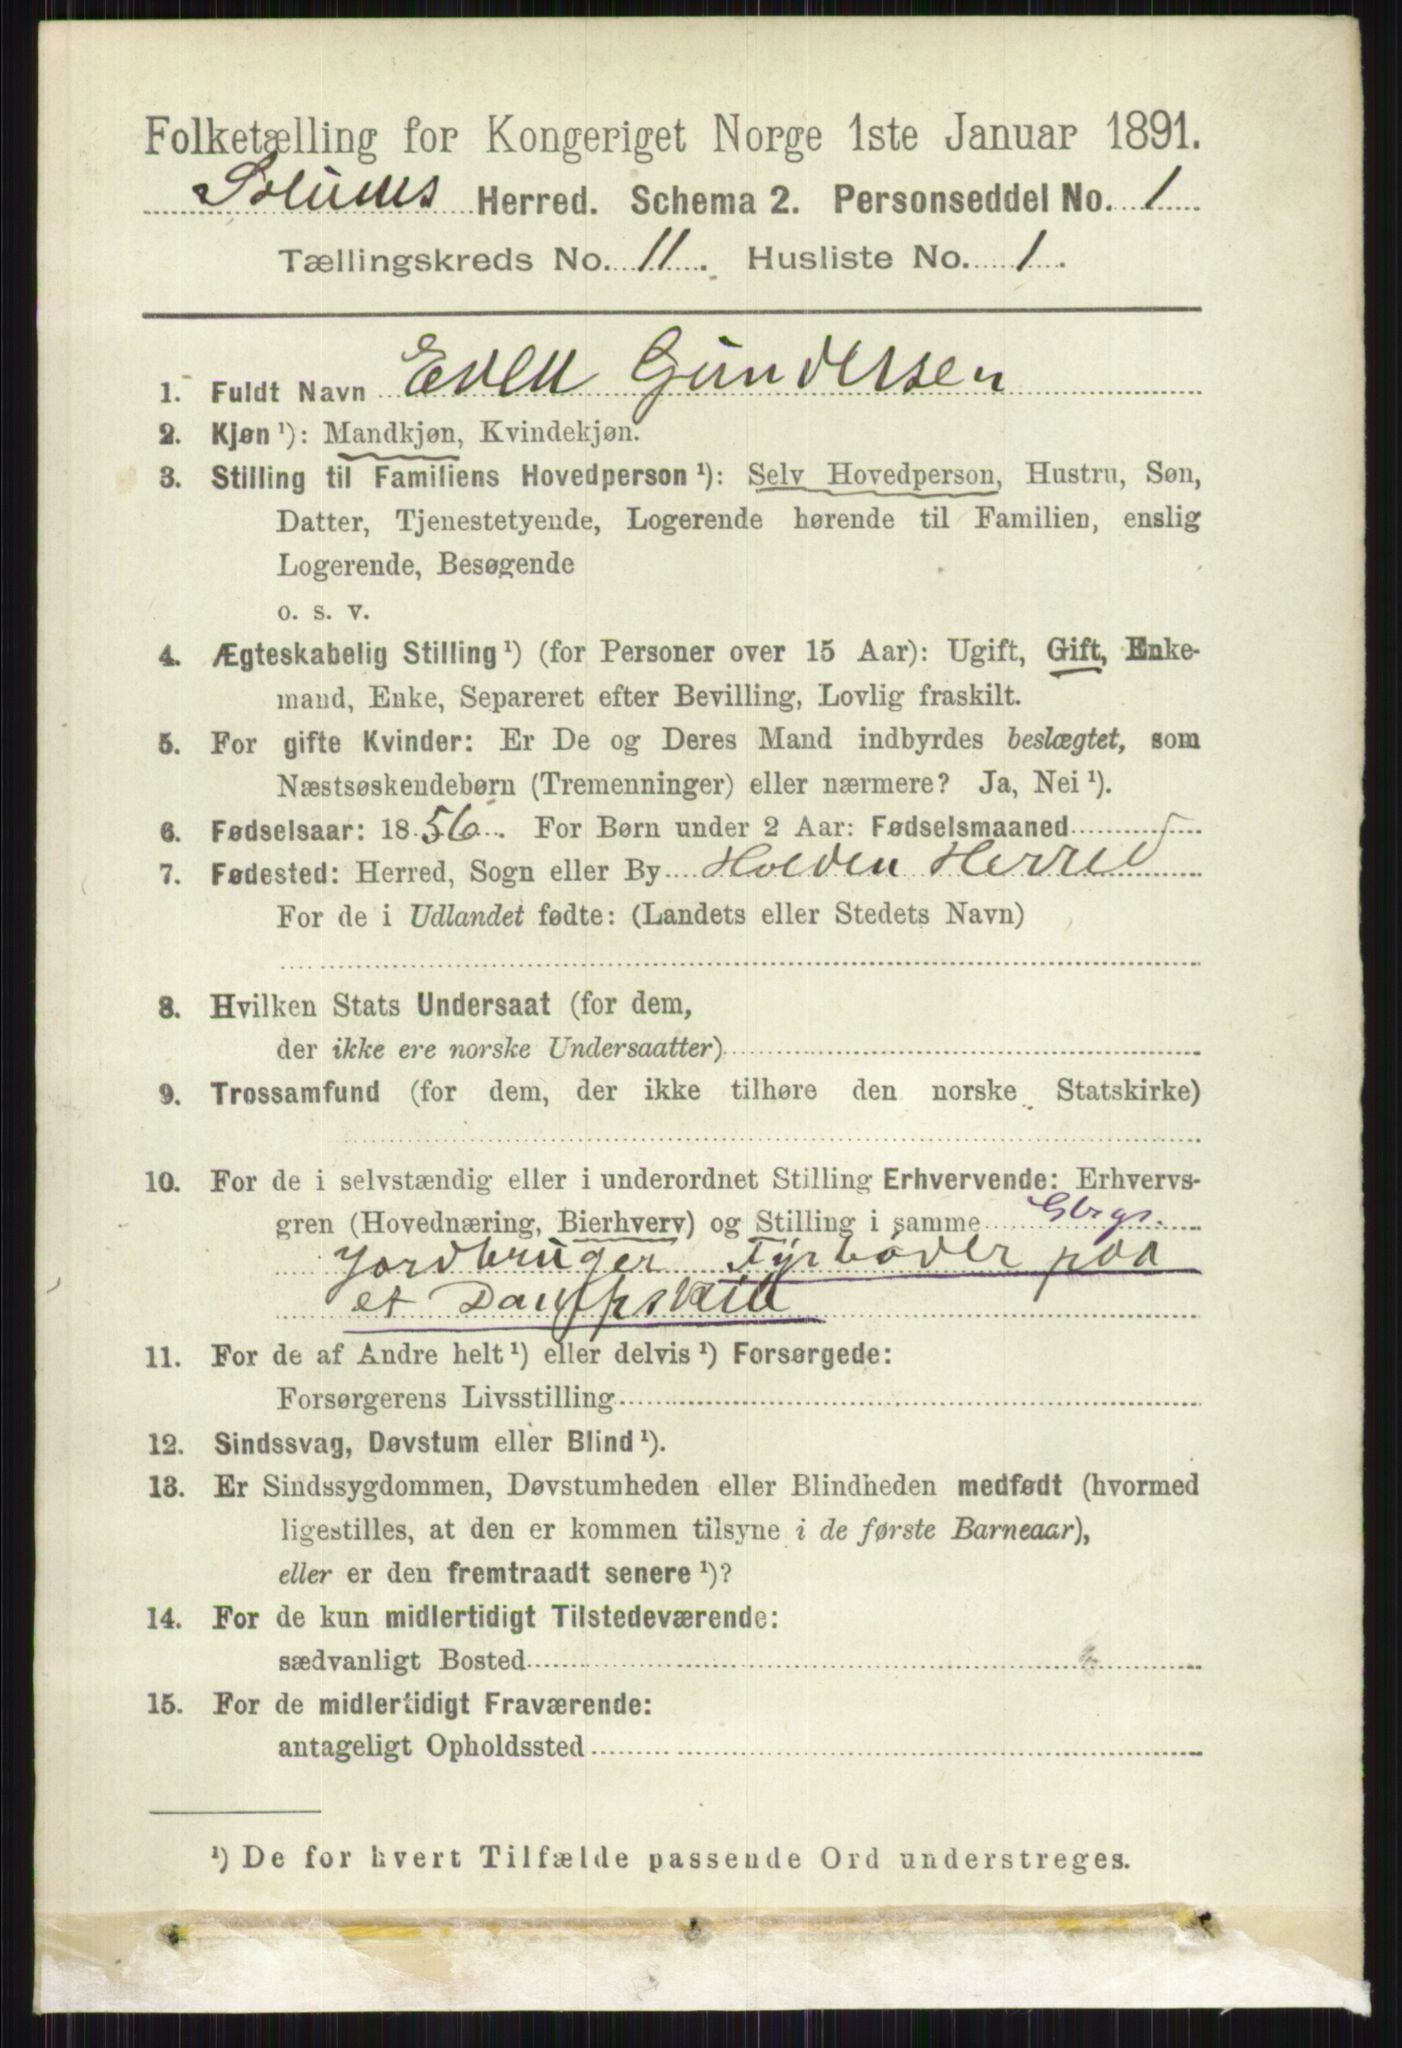 Folketælling for Kongeriget Norge 1ste Januar 1891.
Solums Herred. Schema 2. Personseddel No. 1
Tællingskreds No. 11. Husliste No. 1.
1. Fuldt Navn Even Gundersen
2. Kjøn ¹): Mandkjøn, Kvindekjøn.
3. Stilling til Familiens Hovedperson ¹): Selv Hovedperson, Hustru, Søn,
Datter, Tjenestetyende, Logerende hørende til Familien, enslig
Logerende, Besøgende
o. s. v.
4. Ægteskabelig Stilling ¹) (for Personer over 15 Aar): Ugift, Gift, Enke-
mand, Enke, Separeret efter Bevilling, Lovlig fraskilt.
5. For gifte Kvinder: Er De og Deres Mand indbyrdes beslægtet, som
Næstsøskendebørn (Tremenninger) eller nærmere? Ja, Nei ¹).
6. Fødselsaar: 1856. For Børn under 2 Aar: Fødselsmaaned
7. Fødested: Herred, Sogn eller By Holden Herred
For de i Udlandet fødte: (Landets eller Stedets Navn)
8. Hvilken Stats Undersaat (for dem,
der ikke ere norske Undersaatter)
9. Trossamfund (for dem, der ikke tilhøre den norske Statskirke)
10. For de i selvstændig eller i underordnet Stilling Erhvervende: Erhvervs-
gren (Hovednæring, Bierhverv) og Stilling i samme Gbrgs.
Jordbruger Fyrbøder paa
et Dampskib
11. For de af Andre helt ¹) eller delvis ¹) Forsørgede:
Forsørgerens Livsstilling
12. Sindssvag, Døvstum eller Blind ¹).
13. Er Sindssygdommen, Døvstumheden eller Blindheden medfødt (hvormed
ligestilles, at den er kommen tilsyne i de første Barneaar),
eller er den fremtraadt senere ¹)?
14. For de kun midlertidigt Tilstedeværende:
sædvanligt Bosted
15. For de midlertidigt Fraværende:
antageligt Opholdssted
¹) De for hvert Tilfælde passende Ord understreges.